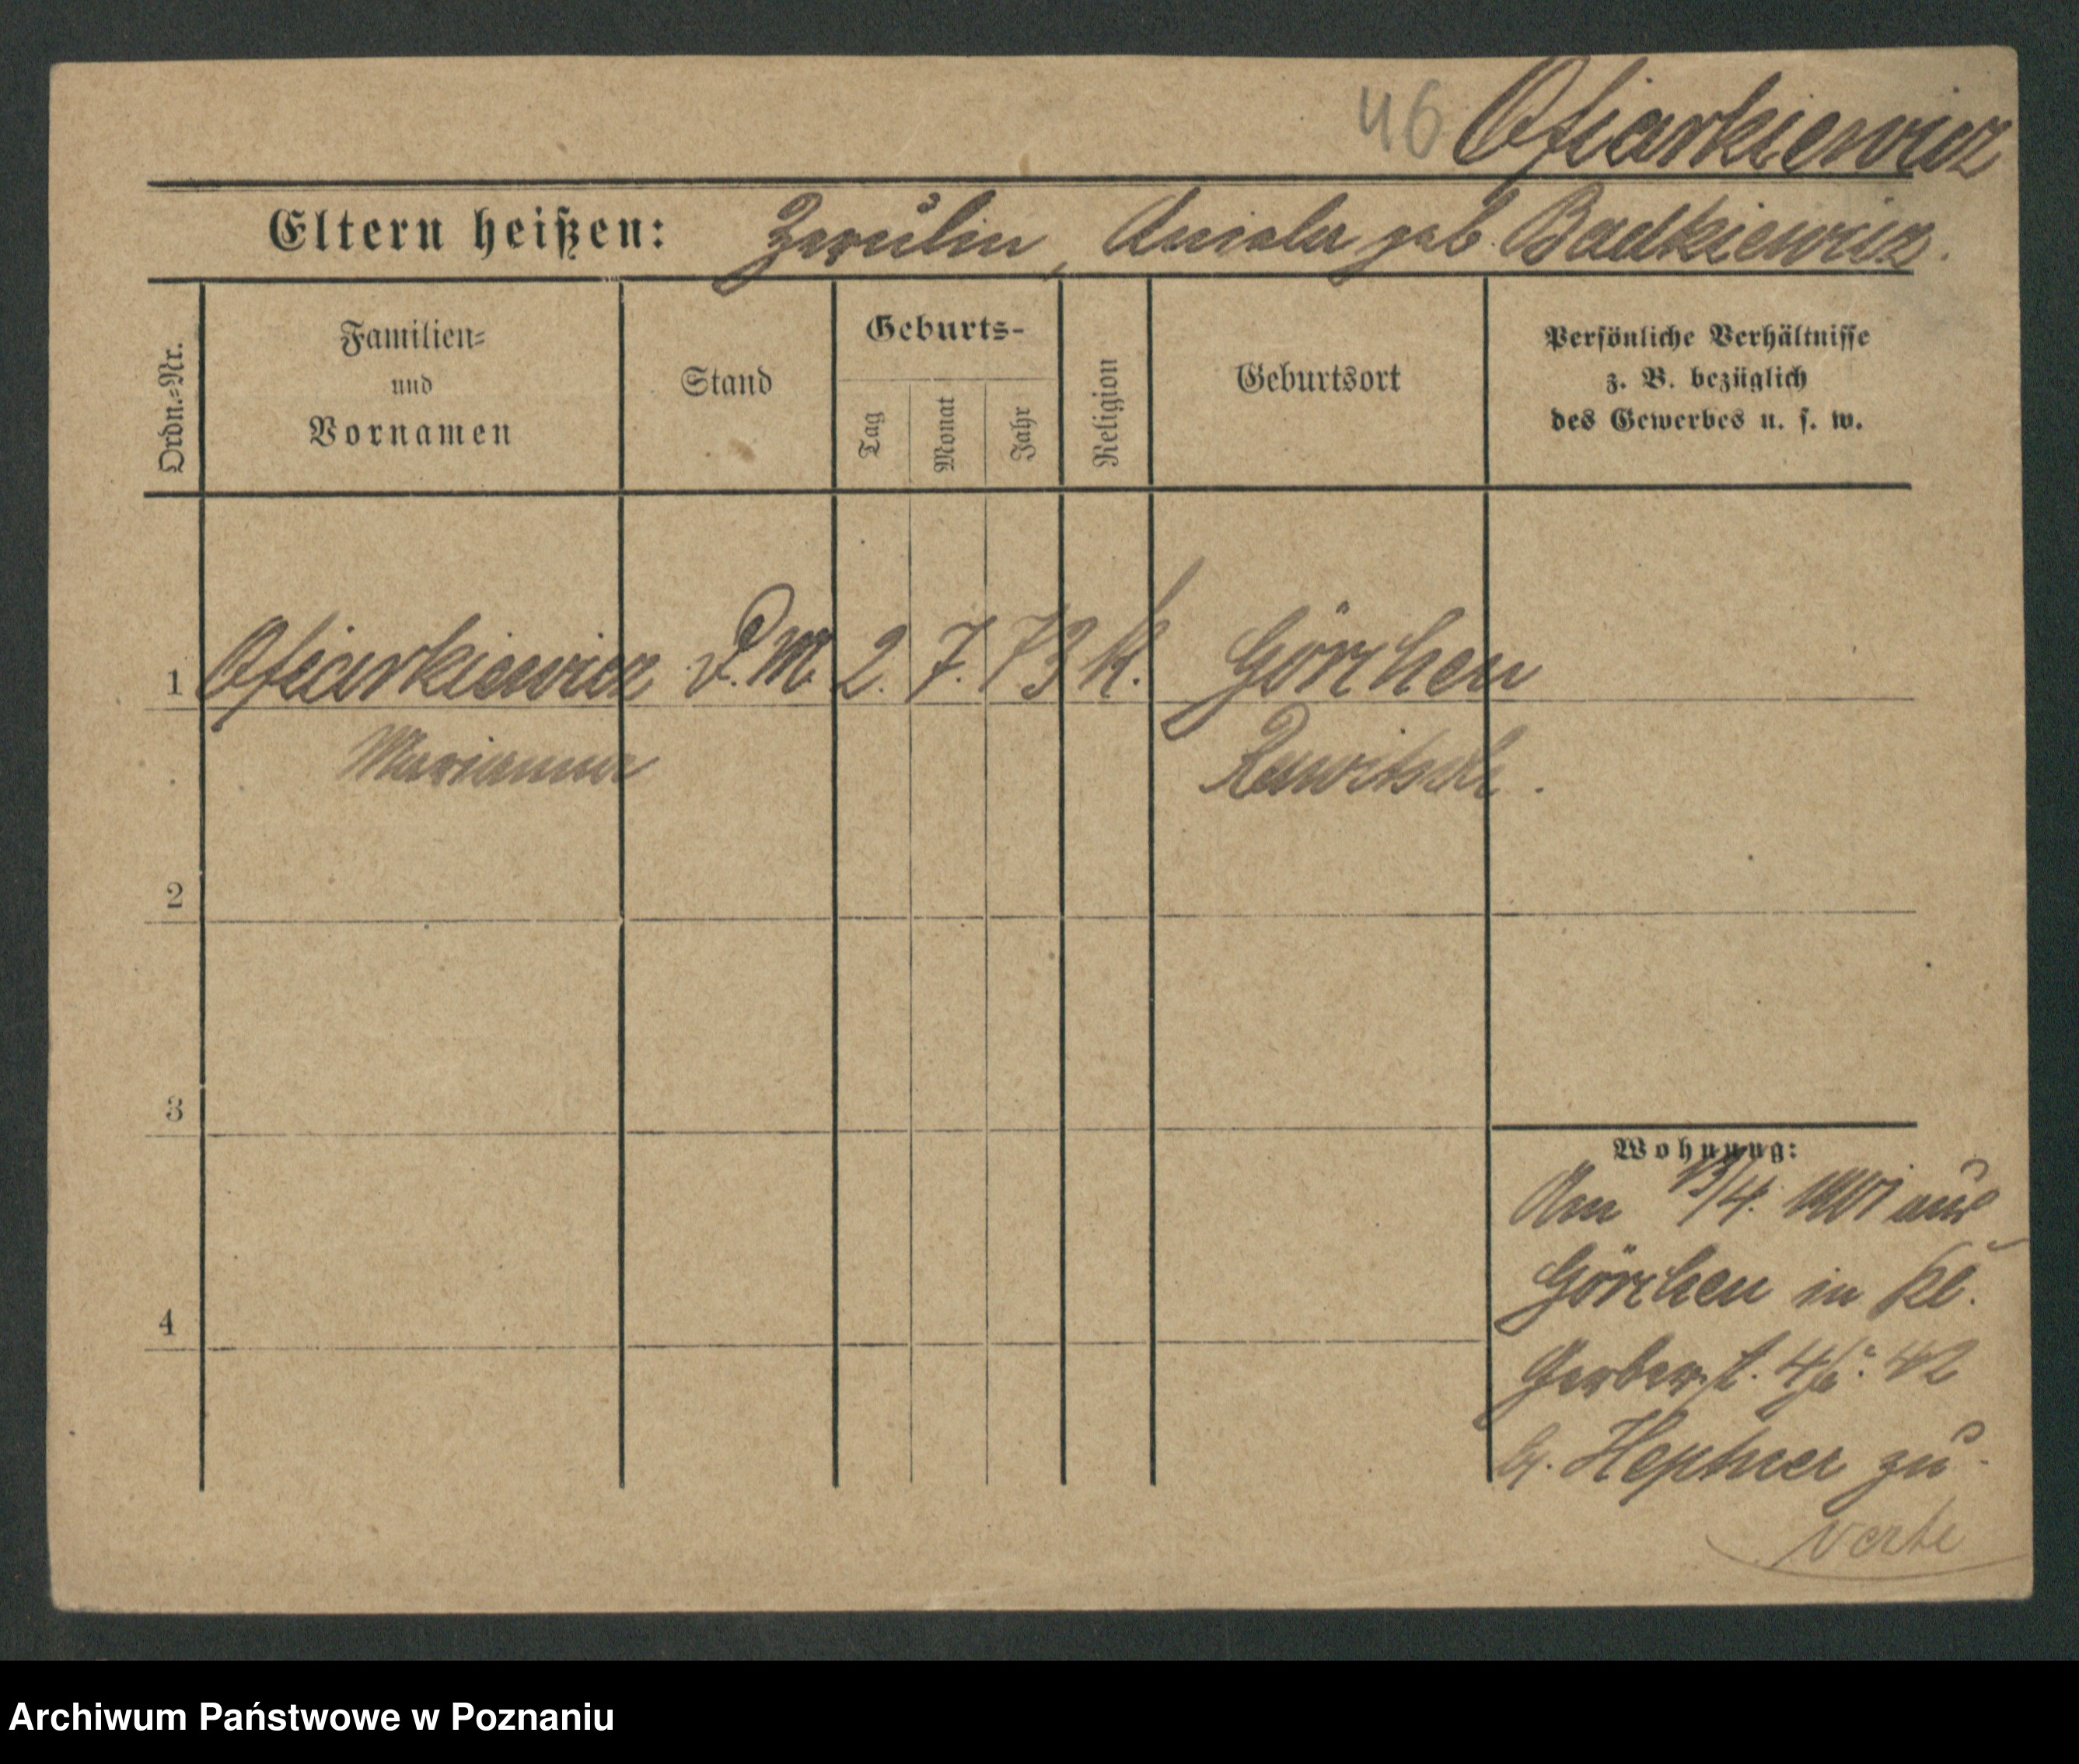 46 Ofiarkiewicz
Eltern heißen: , Aniela geb. Badkiewicz.
Ordn.=Nr.
Familien=
und
Vornamen
Stand
Geburts-
Tag
Monat
Jahr
Religion
Geburtsort
Persönliche Verhältnisse
z. B. bezüglich
des Gewerbes u. s. w.
1 Ofiarkiewicz D.M. 2. 7. 73 K. Görchen
Marianna Rawitsch.
2
3
4
Wohnung:
Am 13/4. aus
Görchen in Kl.
Gerberst. 4 42
b. Hepner zu-
verte
Archiwum Państwowe w Poznaniu